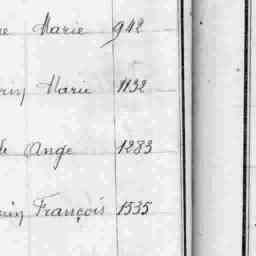 Marie 942
Marie 1132
Ange 1283
François 1535